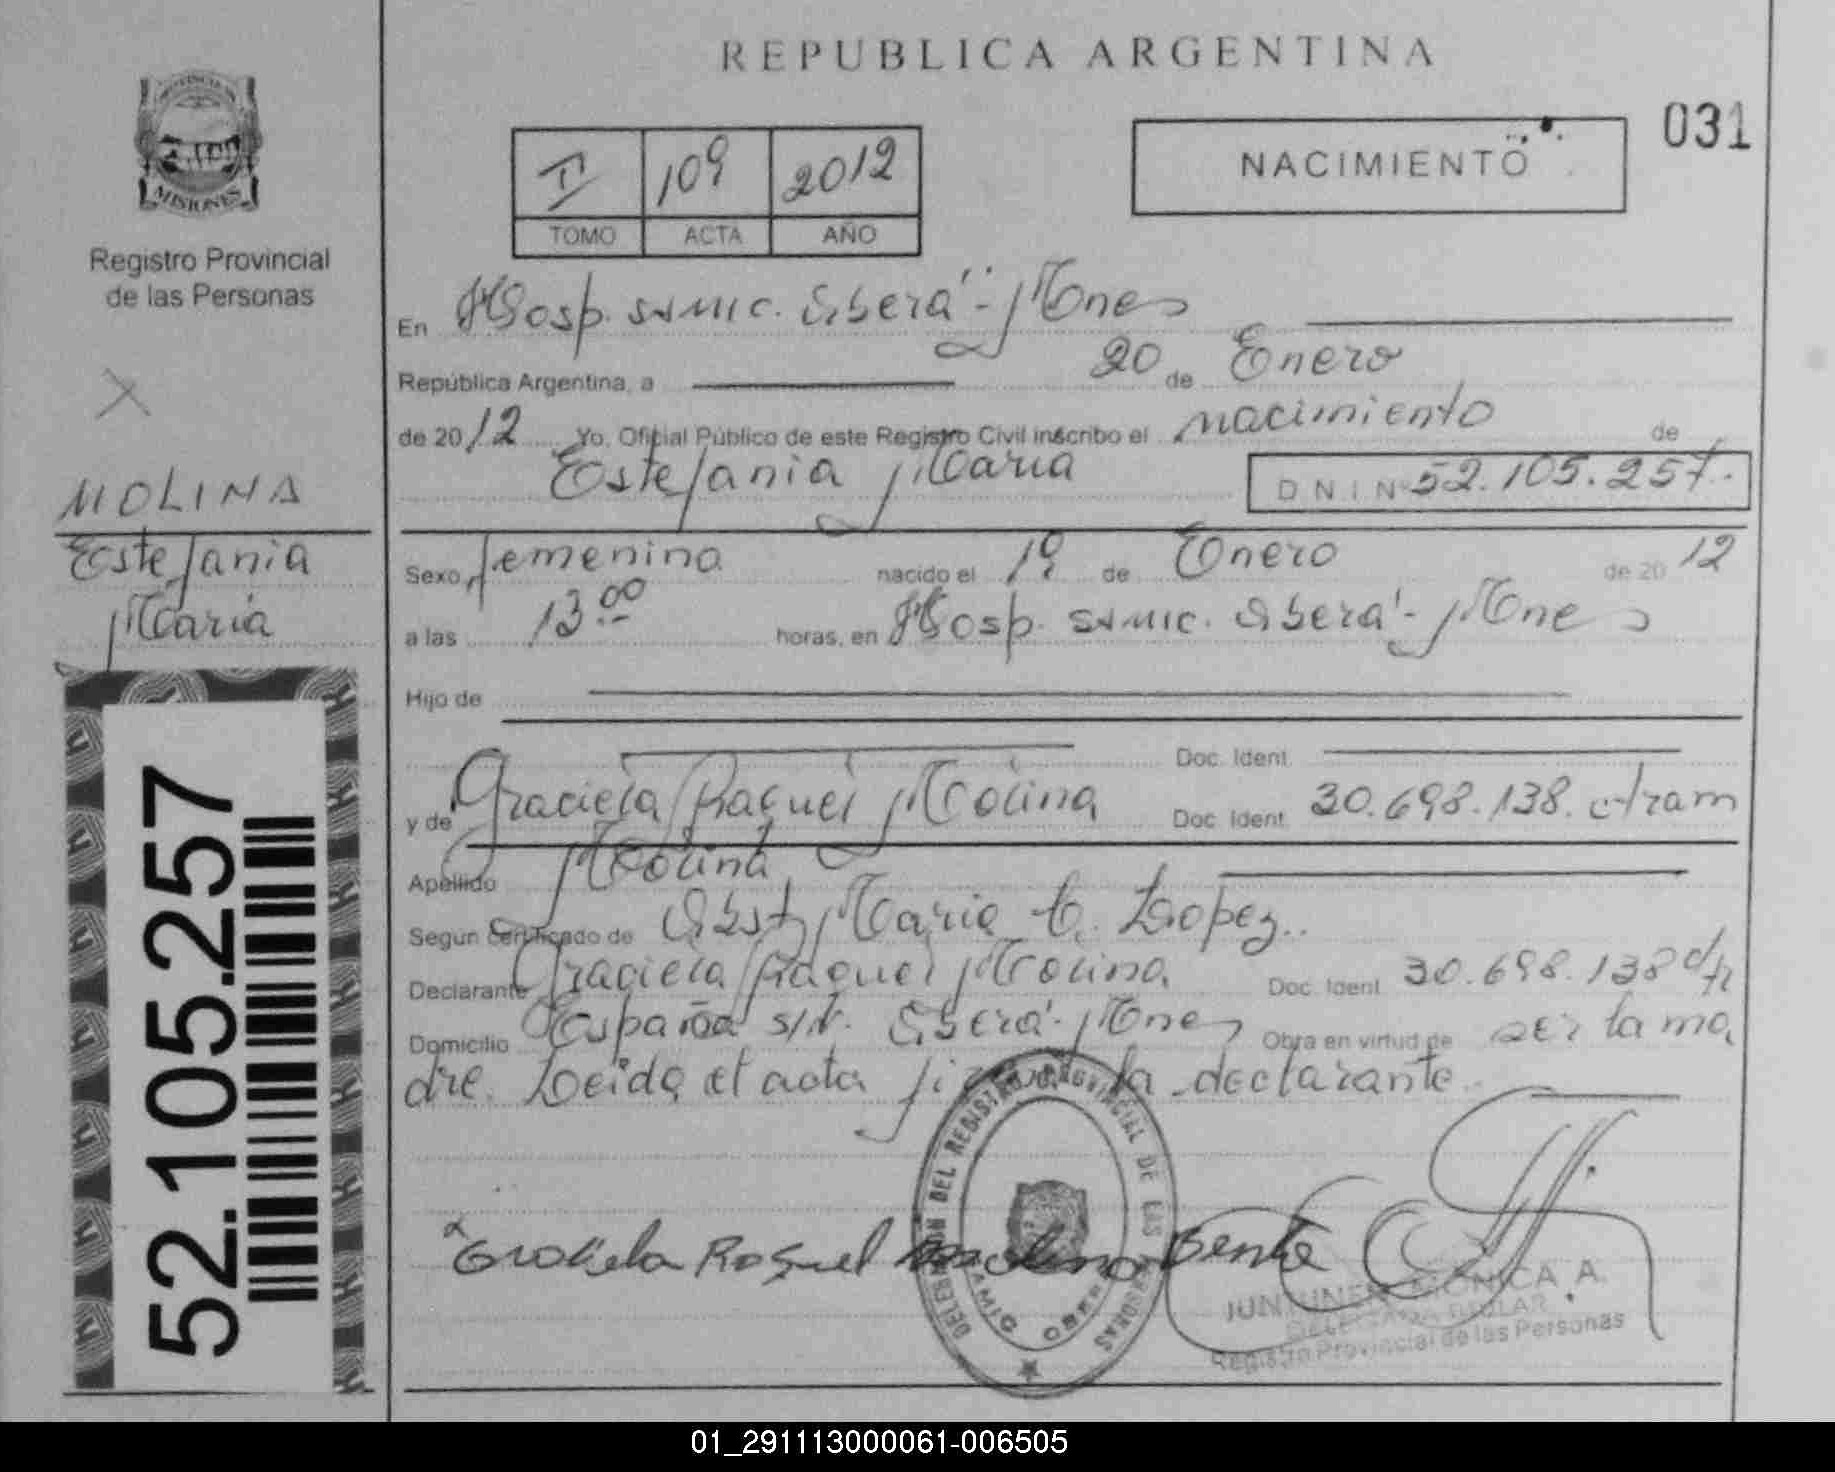 REPUBLICA ARGENTINA
031
NACIMIENTO
II 109 2012
TOMO ACTA AÑO
MISIONES
Registro Provincial
de las Personas
X
MOLINA
Estefania
Maria
52.105.257
En Hosp. SAMIC. Oberá - Mnes
República Argentina, a 20 de Enero
de 2012 Yo, Oficial Público de este Registro Civil inscribo el nacimiento de
Estefania Maria DNI Nº 52.105.257.
Sexo femenino nacido el 19 de Enero de 2012
a las 13.00 horas, en Hosp. SAMIC. Oberá - Mnes
Hijo de
Doc. Ident.
y de Graciela Raquel Molina Doc. Ident. 30.698.138.
Apellido Molina
Según Certificado de Obst. Maria C. Lopez.
Declarante Graciela Raquel Molina Doc. Ident. 30.698.138
Domicilio España s/N. Oberá - Mnes Obra en virtud de ser la ma
dre. Leida el acta firma la declarante.
DELEGACION DEL REGISTRO PROVINCIAL DE LAS PERSONAS
SAMIC OBERA
Graciela Raquel Molina
MONICA A.
DELEGADA TITULAR
Registro Provincial de las Personas
01_291113000061-006505